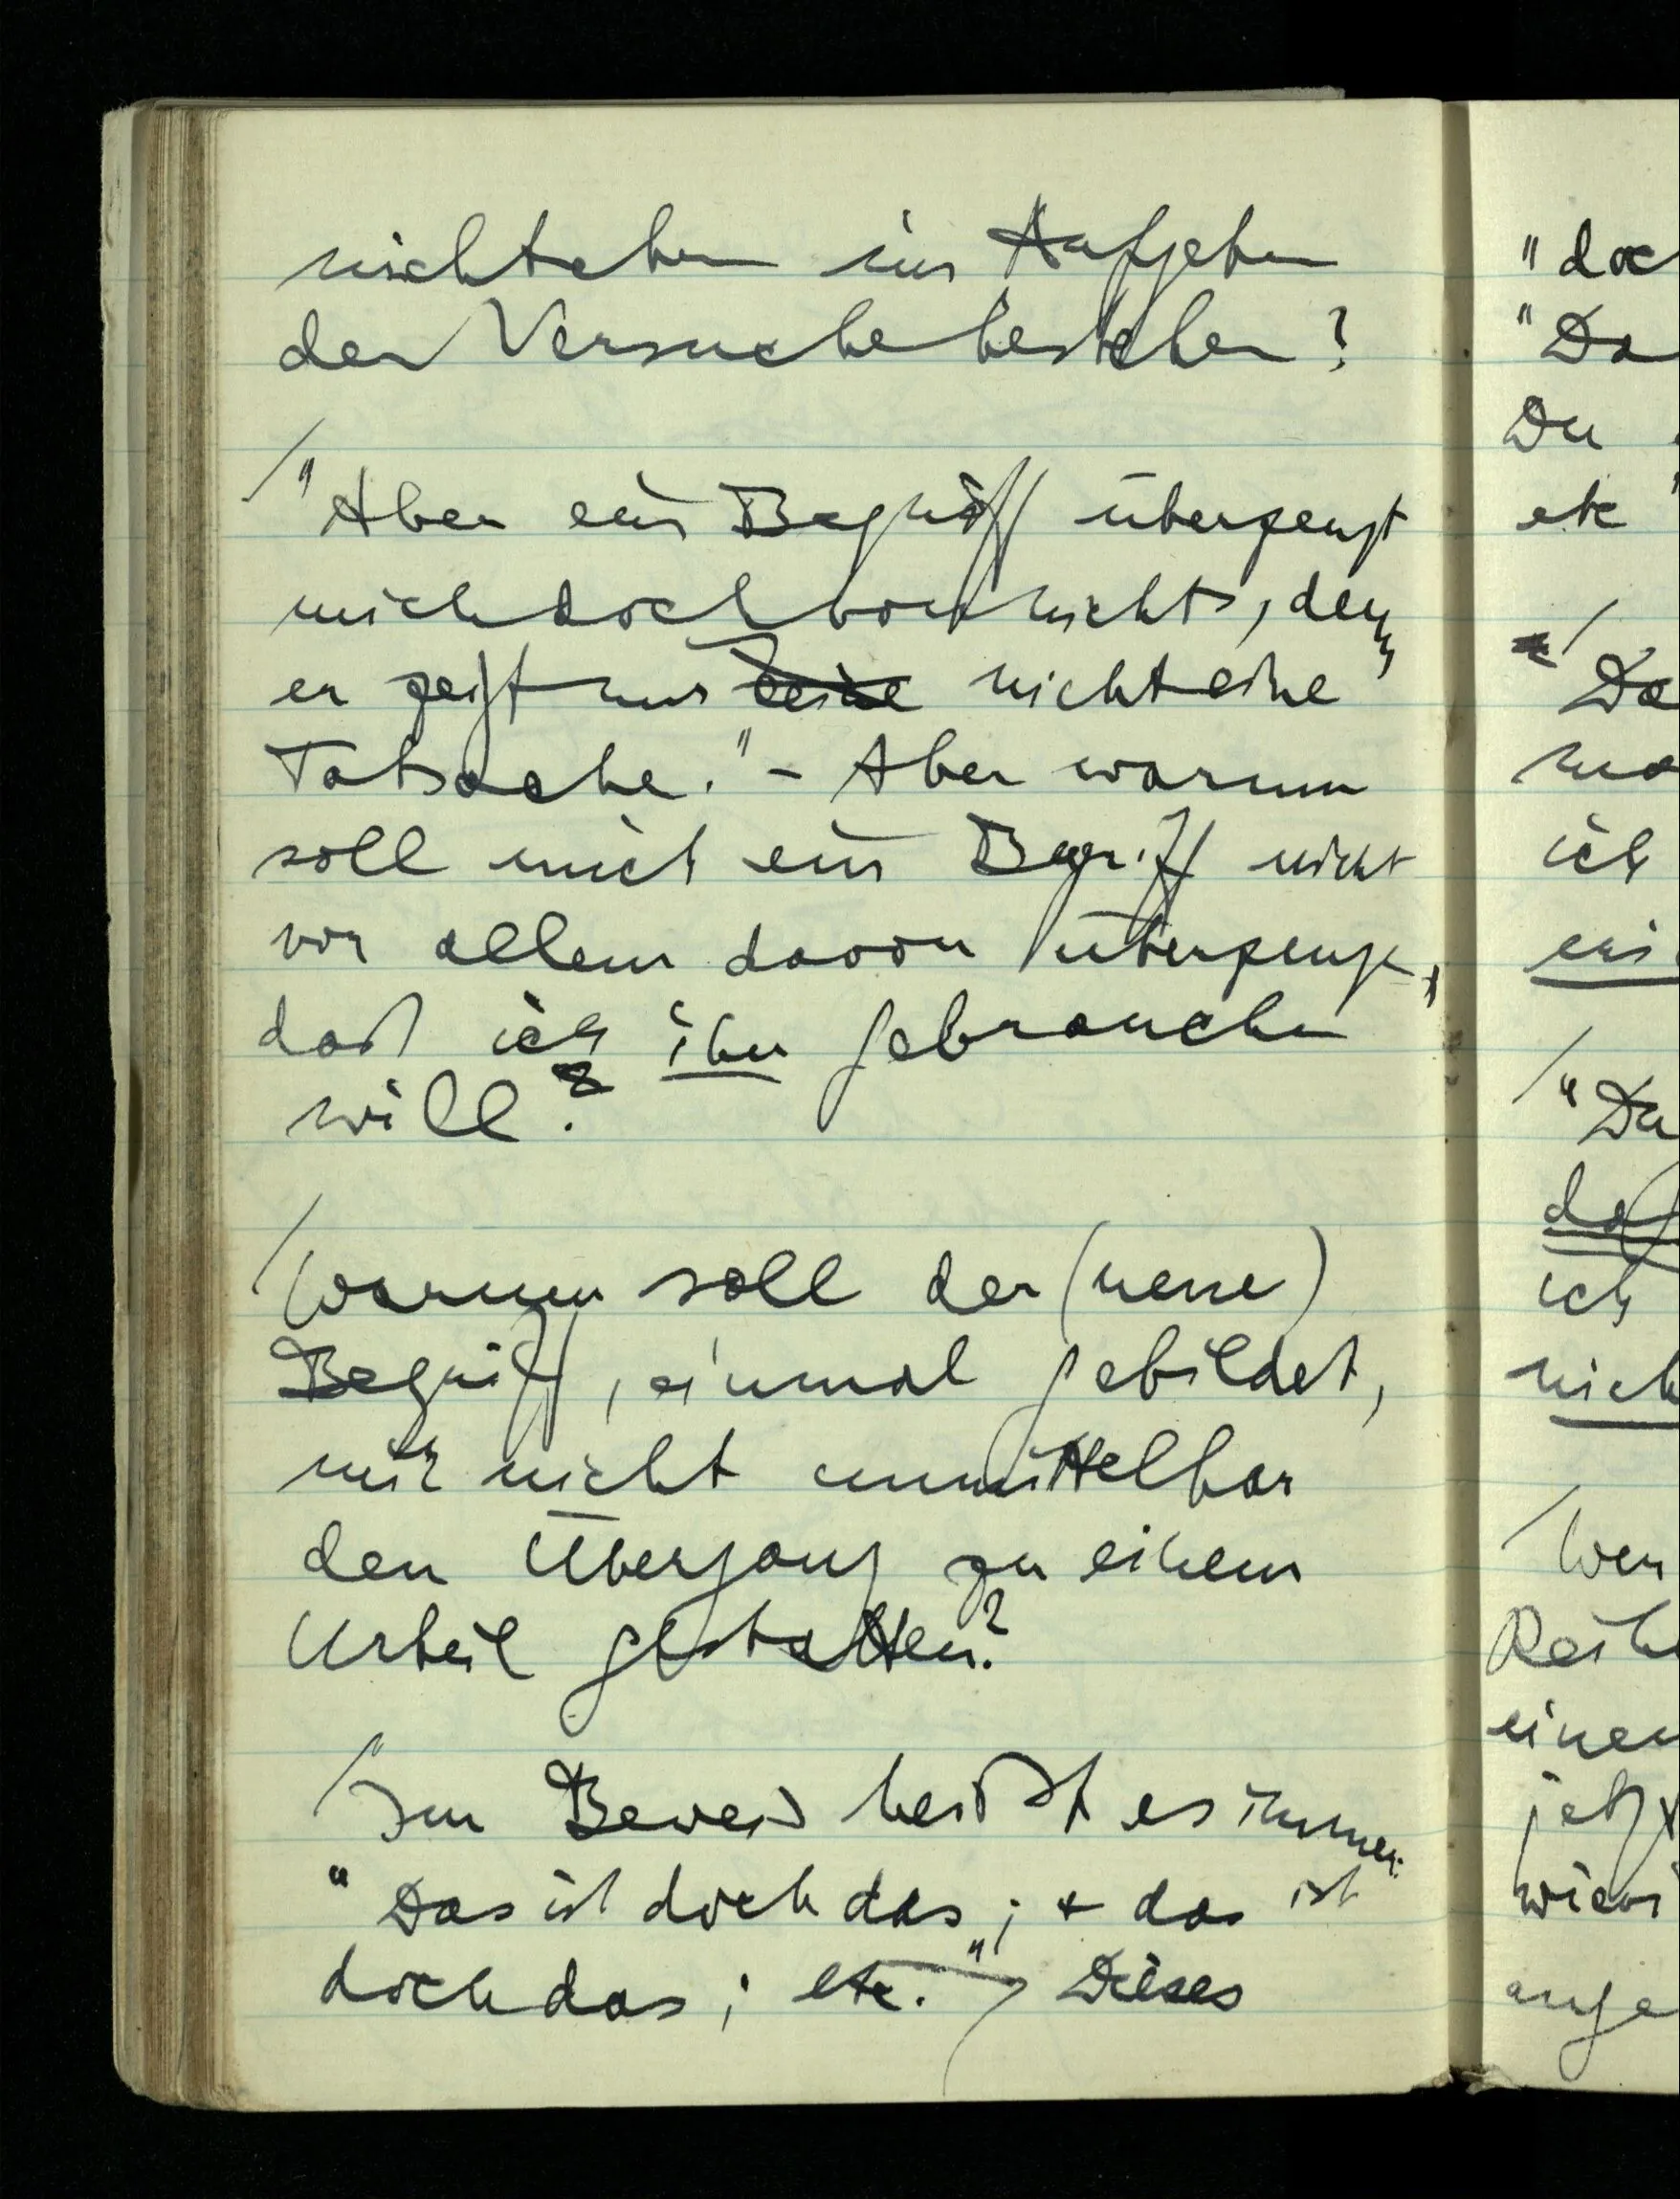 nicht eben im Aufgeben
der Versuche bestehen?
/ "Aber ein Begriff überzeugt
mich doch von nichts, denn
er zeigt mir keine nicht eine
Tatsache." – Aber warum
soll mich ein Begriff nicht
vor allem davon überzeugen,
daß ich ihn gebrauchen
will?
/ Warum soll der (neue)
Begriff, einmal gebildet,
mir nicht unmittelbar
den Übergang zu einem
Urteil gestatten?
/ Im Beweis heißt es immer:
"Das ist doch das; & das ist
doch das; etc." Dieses
"doc
"Da
Du
etc"
/ Da
ma
ich
/ "Du
ich
nich
/ Wen
Reih
einen
jetzt
wien
ange